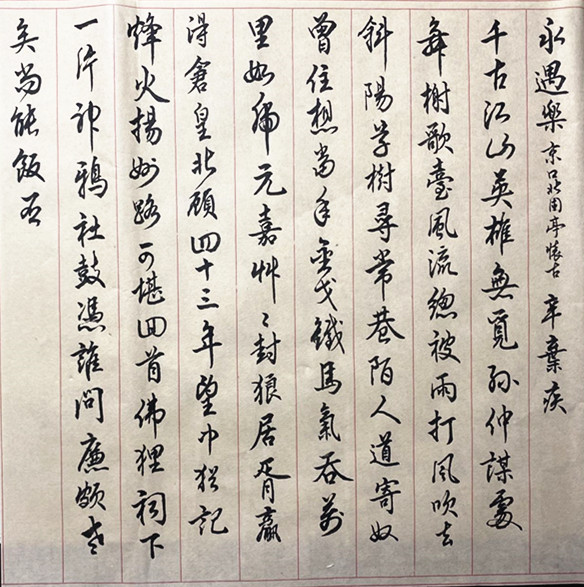 永遇樂 京口北固亭懷古 辛棄疾
千古江山英雄無覓孫仲謀處
舞榭歌臺風流總被雨打風吹去
斜陽草樹尋常巷陌人道寄奴
曾住想當年金戈鐵馬氣吞萬
里如虎元嘉艸〻封狼居胥贏
得倉皇北顧四十三年望中猶記
烽火揚州路可堪回首佛狸祠下
一片神鴉社鼓憑誰問廉頗老
矣尚能飯否